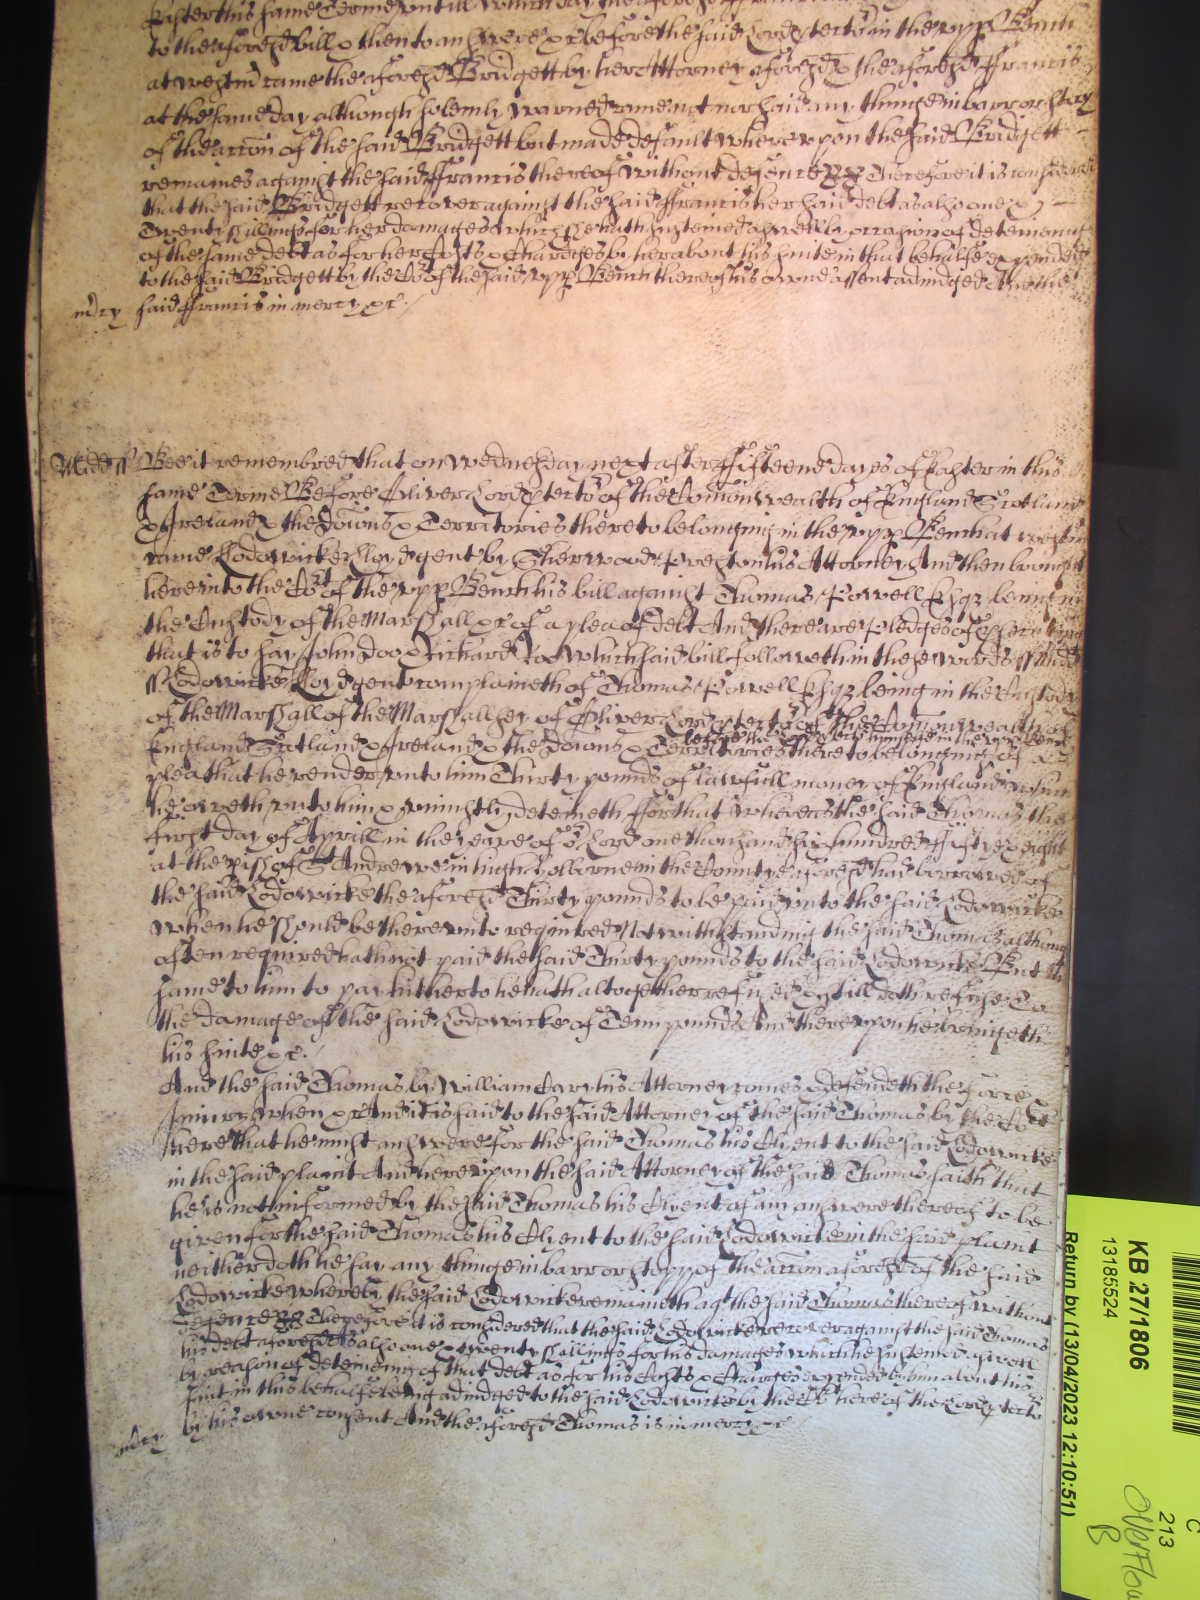 to the aforesd bill & then to answere &c before the said Lord ptector in the upp Bench
at westm came the aforesd Bridgett by her Attorney aforesd & the aforesd ffrancis
at the same day although solemly warned came not nor said any thinge in barr or stay
of the accon of the said Bridgett but made default whereupon the said Bridgett
remaines against the said ffrancis thereof without defence Therefore it is considered
that the said Bridgett recover against the said ffrancis her said debt as alsoe one &
Twenty shillings for her damages which she hath susteined aswell by occasion of deteineing
of the same debt as for her Costs & Chardges by her about his suite in that behalfe expended
to the said Bridgett by the Co of the said upp Bench here of his owne assent adiudged And the
mcy said ffrancis in mercy &c
Midd ss Bee it remembred that on wednesday next after ffifteene dayes of Easter in this
same Terme Before Oliver Lord ptector of the Comonwealth of England Scotland
& Ireland & the Domons & Territories thereto belonging in the upp Bench at westm
came Lodowicke Lloyd gent by Sherwood Preston his Attorney And then brought
here into the Cort of the upp Bench his bill against Thomas Powell Esqz being in
the Custody of the Marshall &c of a plea of debt And there are pledges of
that is to say John Doo & Richard Roo which said bill followeth in these words ss Midd
ss Lodowicke Lloyd gent complaineth of Thomas Powell Esqz being in the Custody
of the Marshall of the Marshallsey of Oliver Lord ptector of the Comonwealth of
England Scotland & Ireland & the Domons & Territories thereto belonging of a
plea that he render unto him Thirty pounds of lawfull money of England which
he oweth unto him & uniustly deteineth ffor that whereas the said Thomas the
first day of Aprill in the yeare of or Lord one thousand six hundred ffifty & eight
at the pish of St Andrewe in high holborne in the County aforesd had borrowed of
the said Lodowicke the aforesd Thirty pounds to be paid unto the said Lodowicke
when he should be thereunto required Notwithstanding the said Thomas although
often required hath not paid the said Thirty pounds to the said Lodowicke But the
same to him to pay hitherto he hath altogether refused & still doth refuse To
the damage of the said Lodowicke of Tenn pounds And thereupon he bringeth
his suite &c
And the said Thomas by William Cary his Attorney comes & defendeth the force &
Iniury when &c And it is said to the said Attorney of the said Thomas by the Cort
here that he must answere for the said Thomas his Client to the said Lodowicke
in the said plaint And hereupon the said Attorney of the said Thomas saith that
he is not informed by the said Thomas his Client of any answere thereof to be
given for the said Thomas his Client to the said Lodowicke in the said plaint
neither doth he say any thinge in barr or stopp of the accon aforesd of the said
Lodowicke whereby the said Lodowicke remaineth agt the said Thomas thereof without
defence Therefore it is considered that the said Lodowicke recover against the said Thomas
his debt aforesd as alsoe one & twenty shillings for his damages which he susteined aswell
by reason of deteineing of that debt as for his Costs & Charges expended by him about his
suit in this behalfe being adiudged to the said Lodowicke by the Co here of the Lord ptector
by his owne consent And the aforesd Thomas is in mercy &c
mcy
KB 27/1806
13185524
Return by (13/04/2023 12:10:51)
C
213
Overflow
B